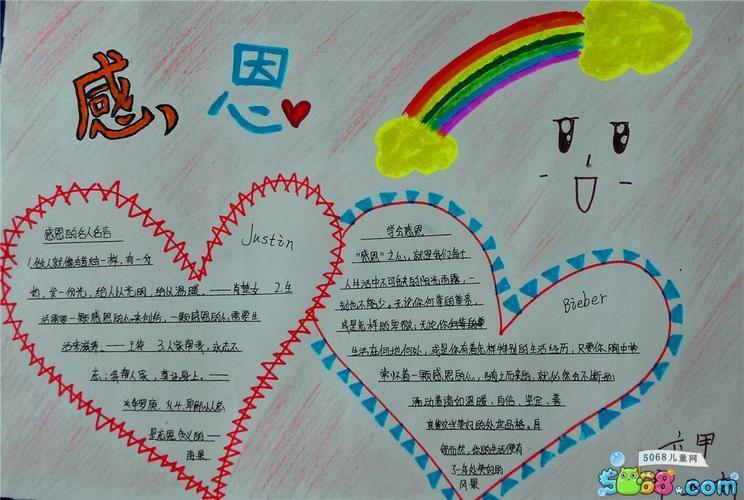 感恩
感恩的名人名言
Justin
1.做人就像蜡烛一样,有一分
热,发一份光,给人以光明,给以温暖。——肖楚女 2.生
活需要一颗感恩的心来创造,一颗感恩的心需要生
活来滋养。——王符 3.人家帮我,永志不
忘;我帮人家,莫记身上。——
华罗庚
是忘恩负义的——
雨果
学会感恩
“感恩”之心,就是我们每个
人生活中不可或缺的阳光雨露,一
刻也不能少。无论你何等的尊贵,
或是怎样的卑微;无论你
生活在何地何处,或是你有着怎样特别的生活经历,只要你胸中常
常怀着一颗感恩的心,随之而来的,就必然会不断地
涌动着诸如温暖、自信、坚定、善
良
处世品格。自
然而然,你的生活便有
了一处
风景
Bieber
六甲
5068儿童网
5068.com